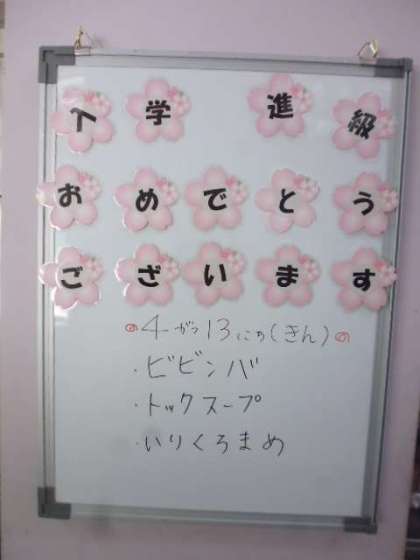 入学 進級
おめでとう
ございます
4がつ13にち(きん)
・ビビンバ
・トックスープ
・いりくろまめ